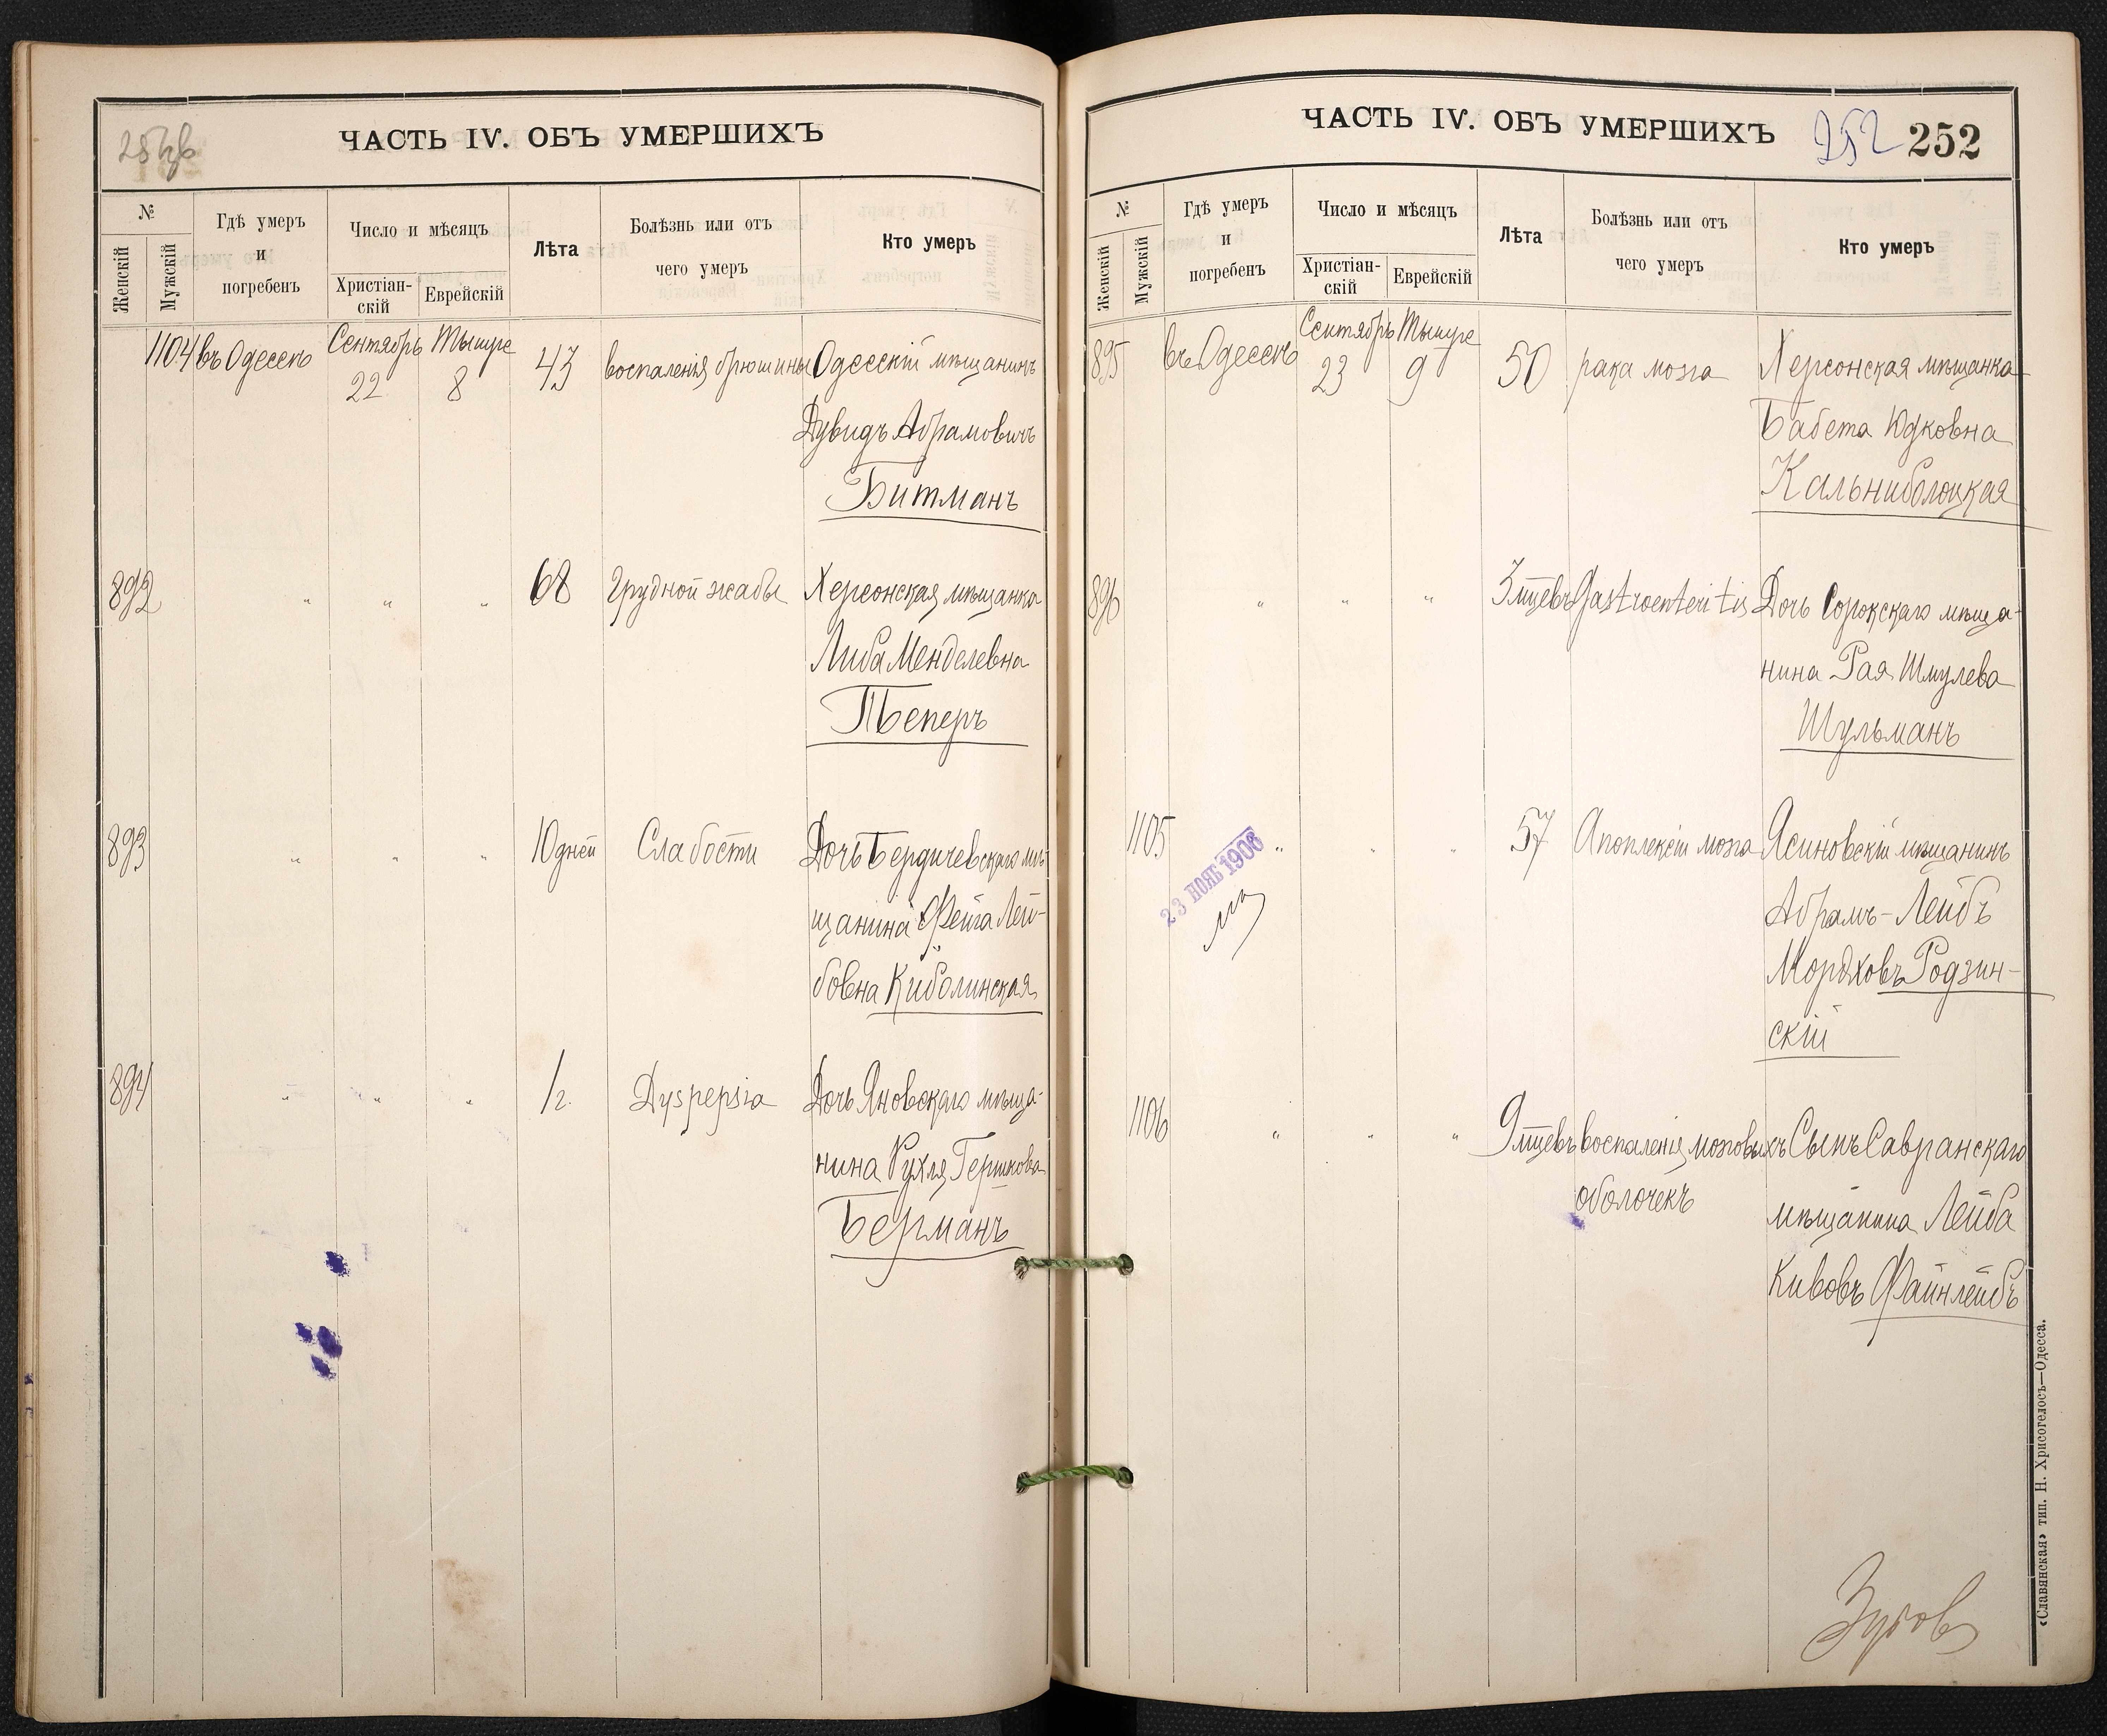 251об
ЧАСТЬ IV. ОБЪ УМЕРШИХЪ
№
Женскій
Мужскій
Гдѣ умеръ
и
погребенъ
Число и мѣсяцъ
Христіан-
скій
Еврейскій
Лѣта
Болѣзнь или отъ
чего умеръ
Кто умеръ
1104 въ Одессѣ Сентябрь 22 Тышре 8 43 воспаленія брюшины Одесскій мѣщанинъ
Дувидъ Абрамовичъ
Битманъ
892 " " " 68 Грудной жабы Херсонская мѣщанка
Либа Менделевна
Пѣперъ
893 " " " 10 дней Слабости Дочь Бердичевскаго мѣ-
щанина Фейга Лей-
бовна Киболинская
894 " " " 1/2 Dyspepsia Дочь Яновскаго мѣща-
нина Рухля Гершкова
Берманъ
ЧАСТЬ IV. ОБЪ УМЕРШИХЪ
252 252
№
Женскій
Мужскій
Гдѣ умеръ
и
погребенъ
Число и мѣсяцъ
Христіан-
скій
Еврейскій
Лѣта
Болѣзнь или отъ
чего умеръ
Кто умеръ
895 въ Одессѣ Сентябрь 23 Тышре 9 50 рака мозга Херсонская мѣщанка
Бабета Юдковна
Кальниболоцкая
896 " " " 3 мцевъ Gastroenteritis Дочь Сорокскаго мѣща-
нина Рая Шмулева
Шульманъ
1105 " " " 57 Апоплексіи мозга Ясиновскій мѣщанинъ
Абрамъ-Лейбъ
Мордховъ Родзин-
скій
23 НОЯБ 1908
1106 " " " 9 мцевъ воспаленія мозговыхъ Сынъ Савранскаго
оболочекъ мѣщанина Лейба
Кивовъ Файнлейбъ
«Славянская» тип. Н. Хрисогелосъ—Одесса.